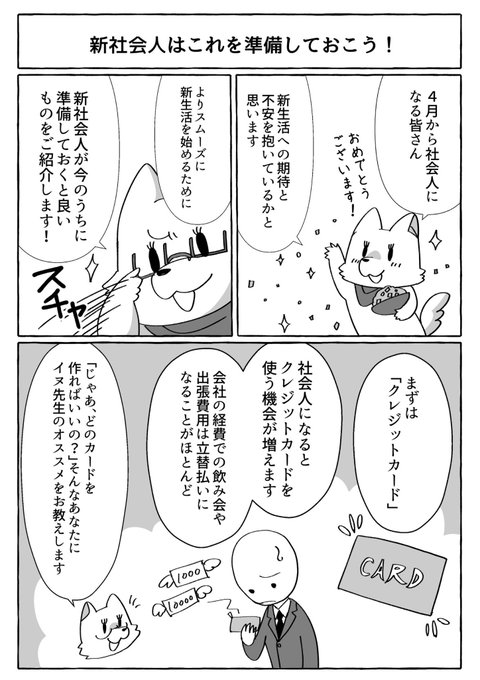 新社会人はこれを準備しておこう！
４月から社会人に
なる皆さん
おめでとう
ございます！
新生活への期待と
不安を抱いているかと
思います
よりスムーズに
新生活を始めるために
新社会人が今のうちに
準備しておくと良い
ものをご紹介します！
スチャ
まずは
「クレジットカード」
社会人になると
クレジットカードを
使う機会が増えます
会社の経費での飲み会や
出張費用は立替払いに
なることがほとんど
「じゃあ、どのカードを
作ればいいの？」そんなあなたに
イヌ先生のオススメをお教えします
CARD
1000
10000